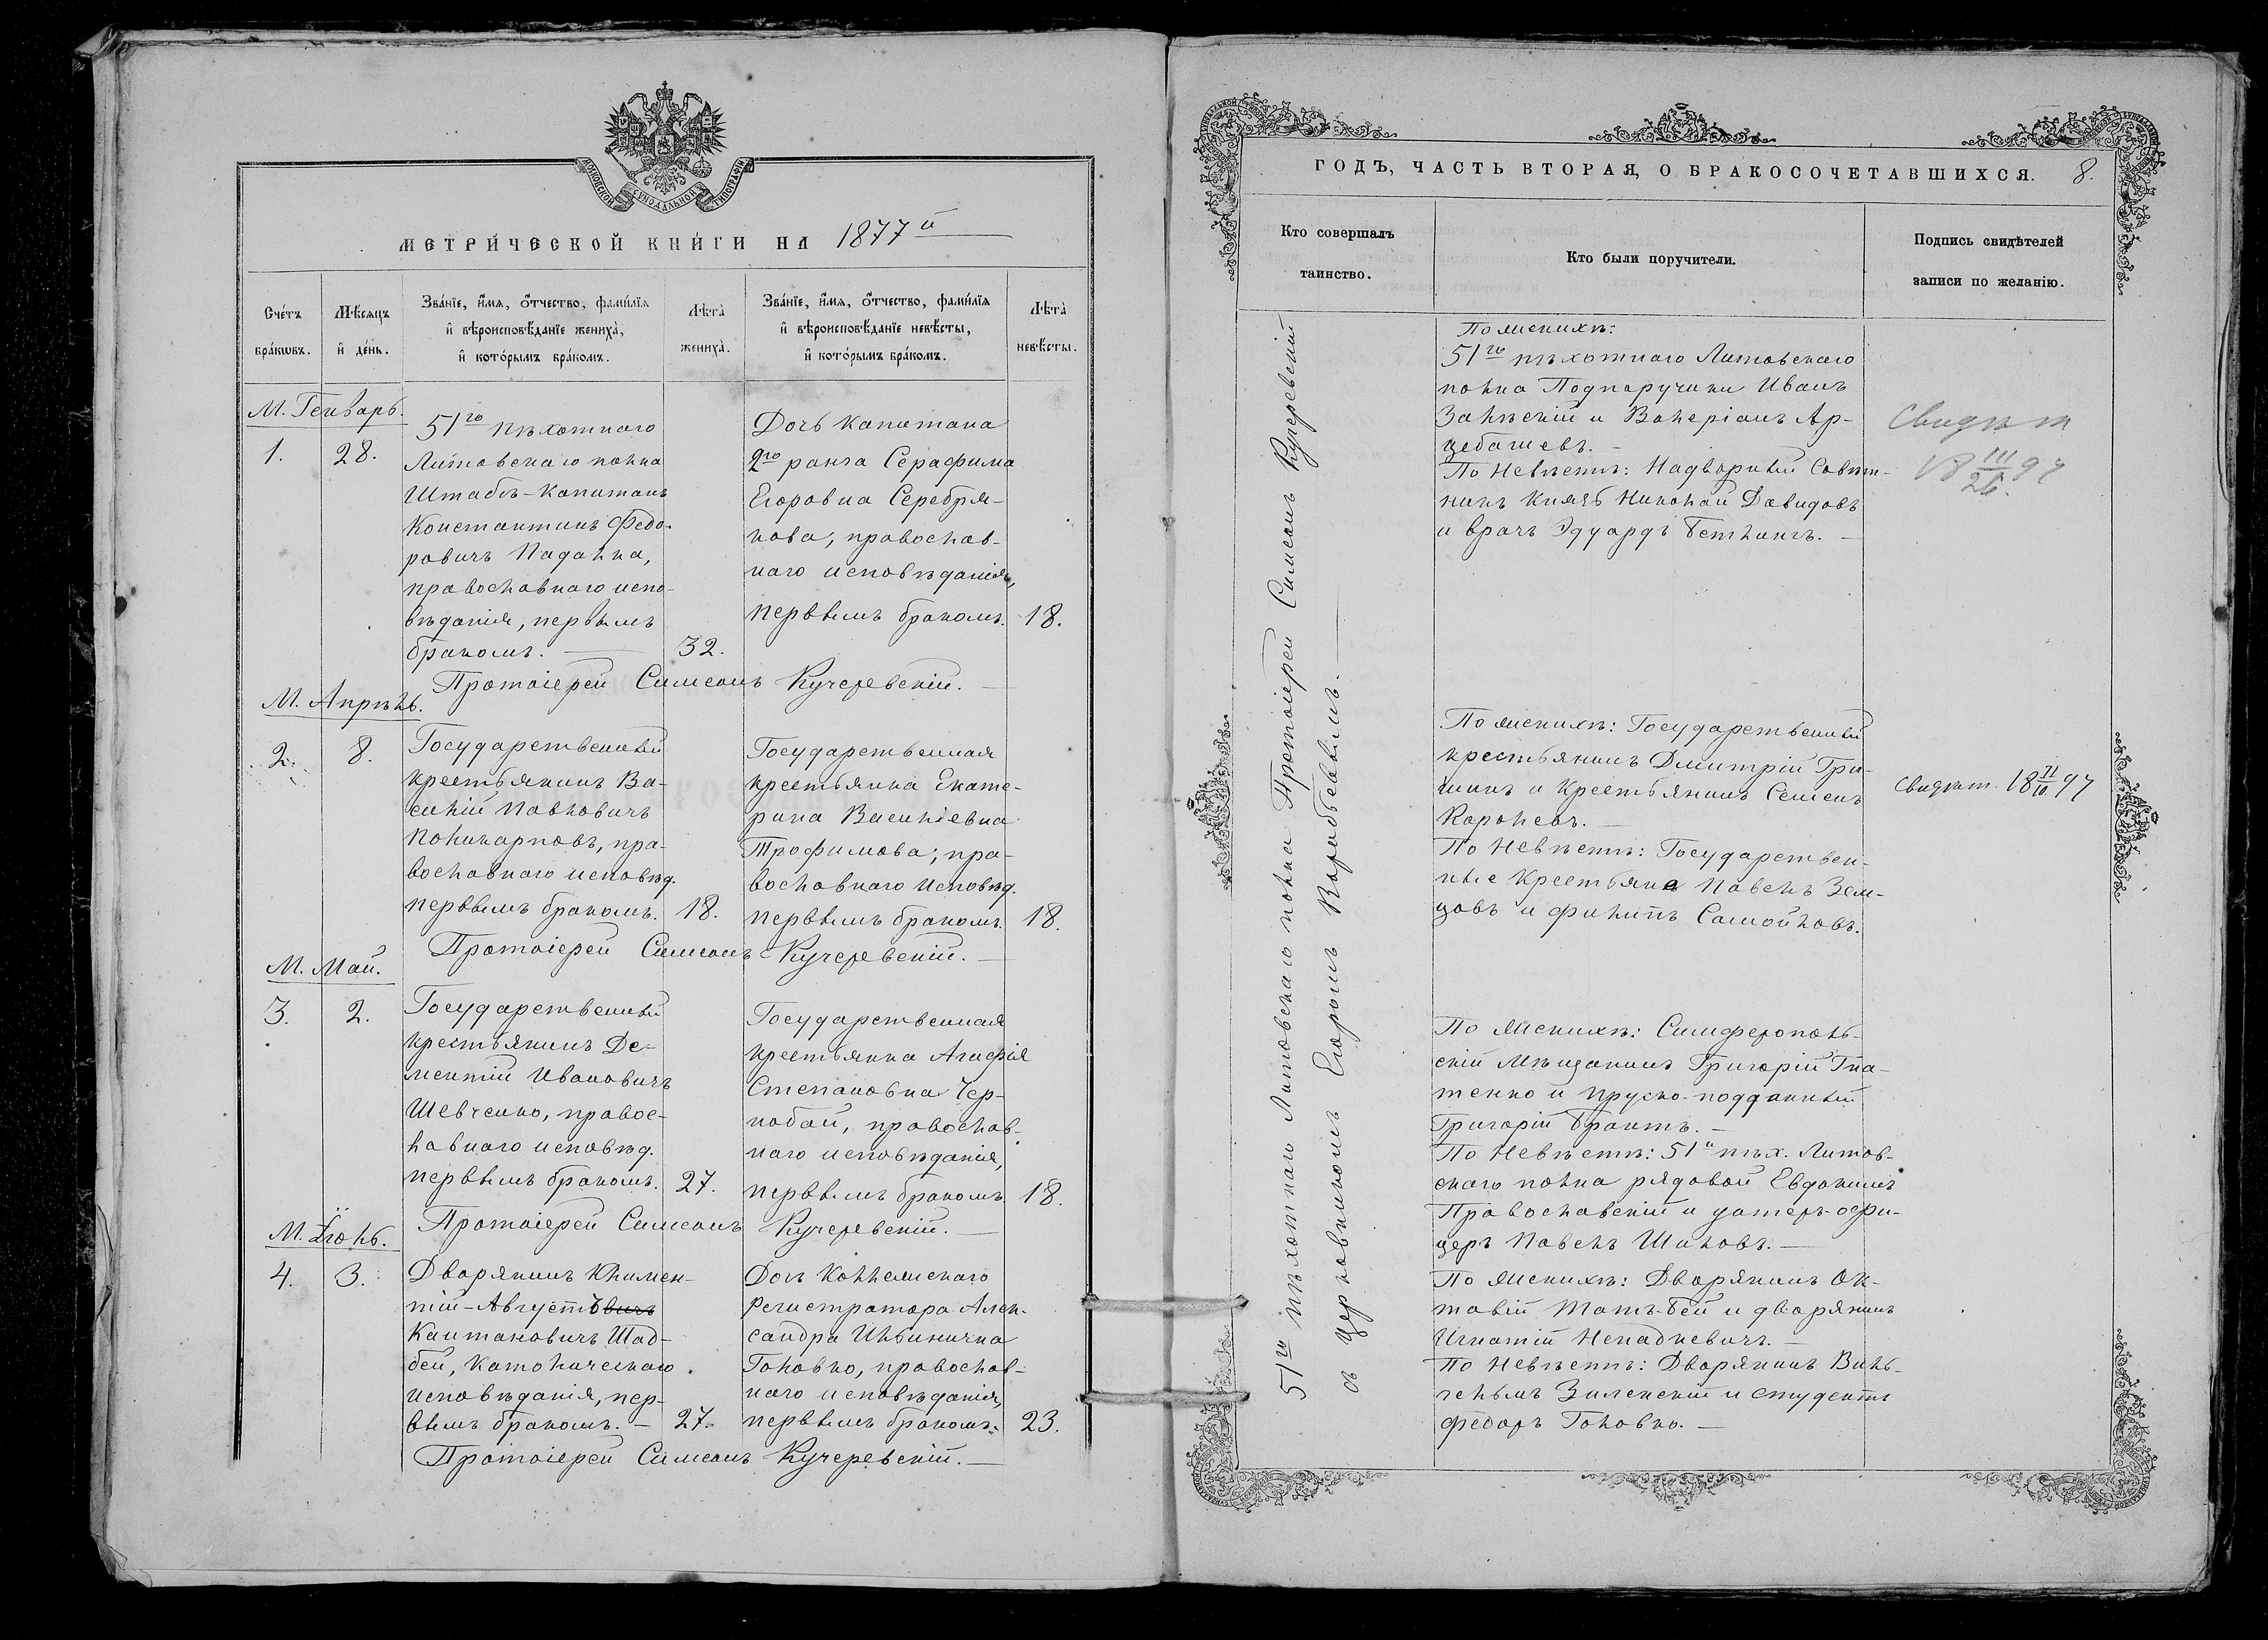 МОСКОВСКОЙ СѴНОДАЛЬНОЙ ТИПОГРАФІИ
МЕТРИ́ЧЕСКОЙ КНИ́ГИ НА 1877й
Сче́тъ бра́кωвъ.
Мѣ́сяцъ и҆ де́нь.
Зва́нїе, и҆́мѧ, ѻ҆́тчество, фамі́лїѧ
и҆ вѣроисповѣ́данїе жениха̀,
и҆ кото́рымъ бра́комъ.
Лѣ́та̀ жениха̀.
Зва́нїе, и҆́мѧ, ѻ҆́тчество, фамі́лїѧ
и҆ вѣроисповѣ́данїе невѣ́сты,
и҆ кото́рымъ бра́комъ.
Лѣ́та̀ невѣ́сты.
М. Генварь.
1.
28.
51го пѣхотнаго
Литовскаго полка
Штабсъ-Капитанъ
Константинъ Федо-
ровичъ Падалка,
православнаго испо-
вѣданія, первымъ
бракомъ.
32.
Дочь капитана
2го ранга Серафима
Егоровна Серебря-
кова, православ-
наго исповѣданія,
первымъ бракомъ.
18.
Протоіерей Симеонъ Кучеревскій.
М. Апрѣль.
2.
8.
Государственный
крестьянинъ Ва-
силій Павловичъ
Поликарповъ, пра-
вославнаго исповѣд.
первымъ бракомъ.
18.
Государственная
крестьянка Екате-
рина Василіевна
Трофимова, пра-
вославнаго исповѣд.
первымъ бракомъ.
18.
Протоіерей Симеонъ Кучеревскій.
М. Май.
3.
2.
Государственный
крестьянинъ Де-
ментій Ивановичъ
Шевченко, правос-
лавнаго исповѣд.
первымъ бракомъ.
27.
Государственная
крестьянка Агафія
Степановна Чер-
нобай, православ-
наго исповѣданія,
первымъ бракомъ
18.
Протоіерей Симеонъ Кучеревскій.
М. Іюль.
4.
3.
Дворянинъ Климен-
тій-Августъ
Каитановичъ Шад-
бей, Католическаго
исповѣданія, пер-
вымъ бракомъ.
27.
Дочь Коллежскаго
Регистратора Алек-
сандра Ильинична
Головко, православ-
наго исповѣданія,
первымъ бракомъ.
23.
Протоіерей Симеонъ Кучеревскій.
ГОДЪ, ЧАСТЬ ВТОРАЯ, О БРАКОСОЧЕТАВШИХСЯ.
8.
Кто совершалъ
таинство.
Кто были поручители.
Подпись свидѣтелей
записи по желанію.
51го пѣхотнаго Литовскаго полка Протоіерей Симеонъ Кучеревскій
съ церковникомъ Егоромъ Воробьевымъ.
По женихѣ:
51го пѣхотнаго Литовскаго
полка Подпоручики Иванъ
Залѣскій и Валеріанъ Ар-
цебашевъ.
По Невѣстѣ: Надворный Совѣт-
никъ Князь Николай Давидовъ
и врачъ Эдуардъ Бетлингъ.
Свидѣт
18 III/26. 97
По женихѣ: Государственный
крестьянинъ Дмитрій Гри-
шинъ и Крестьянинъ Семенъ
Королевъ.
По Невѣстѣ: Государствен-
ные Крестьяне Павелъ Зем-
цовъ и Филипъ Самойловъ.
Свидѣт. 18 II/10. 97
По женихѣ: Симферополь-
скій Мѣщанинъ Григорій Гна-
тенко и пруско-подданный
Григорій Брантъ.
По Невѣстѣ: 51й пѣх. Литов-
скаго полка рядовой Евдокимъ
Православскій и унтеръ-офи-
церъ Павелъ Шиловъ.
По женихѣ: Дворянинъ Ок-
тавій Татъ-Бей и дворянинъ
Игнатій Ненадкевичъ.
По Невѣстѣ: Дворянинъ Виль-
гельмъ Зиленскій и студентъ
Федоръ Головко.